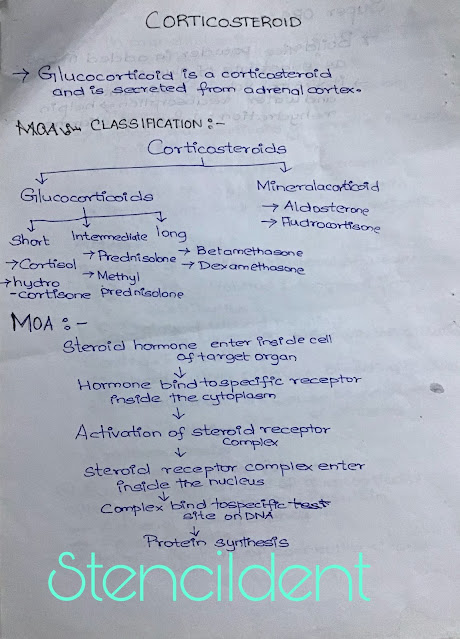 CORTICOSTEROID
→ Glucocorticoid is a corticosteroid
and is secreted from adrenal cortex.
MOA CLASSIFICATION :-
Corticosteroids
Glucocorticoids
Mineralacorticoid
→ Aldosterone
→ Fludrocortisone
Short Intermediate long
→ Cortisol → Prednisolone → Betamethasone
→ hydro → Methyl → Dexamethasone
-cortisone prednisolone
MOA :-
Steroid hormone enter inside cell
of target organ
↓
Hormone bind to specific receptor
inside the cytoplasm
↓
Activation of steroid receptor
complex
↓
Steroid receptor complex enter
inside the nucleus
↓
Complex bind to specific test
site on DNA
↓
Protein synthesis
Stencildent